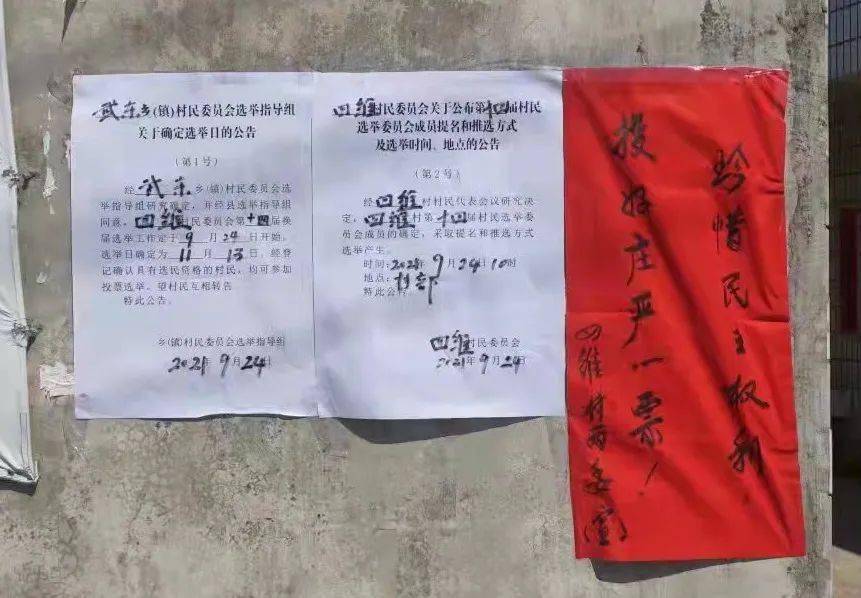 武东乡(镇)村民委员会选举指导组
关于确定选举日的公告
(第1号)
经武东乡(镇)村民委员会选
举指导组研究确定，并经县选举指导组
同意，四维村民委员会第十四届换
届选举工作定于9月24日开始，
选举日确定为11月13日。经登
记确认具有选民资格的村民，均可参加
投票选举。望村民互相转告
特此公告。
乡(镇)村民委员会选举指导组
2021 9月24日
四维村民委员会关于公布第十四届村民
选举委员会成员提名和推选方式
及选举时间、地点的公告
(第2号)
经四维村村民代表会议研究决
定，四维村第十四届村民选举委
员会成员的确定，采取提名和推选方式
选举产生。
时间：2021年9月24日10时
地点：村部
特此公告
四维村民委员会
2021年9月24日
珍惜民主权利
投好庄严一票！
四维村两委(宣)